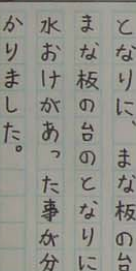 となりに、まな板の台
まな板の台のとなりに
水おけがあった事が分
かりました。